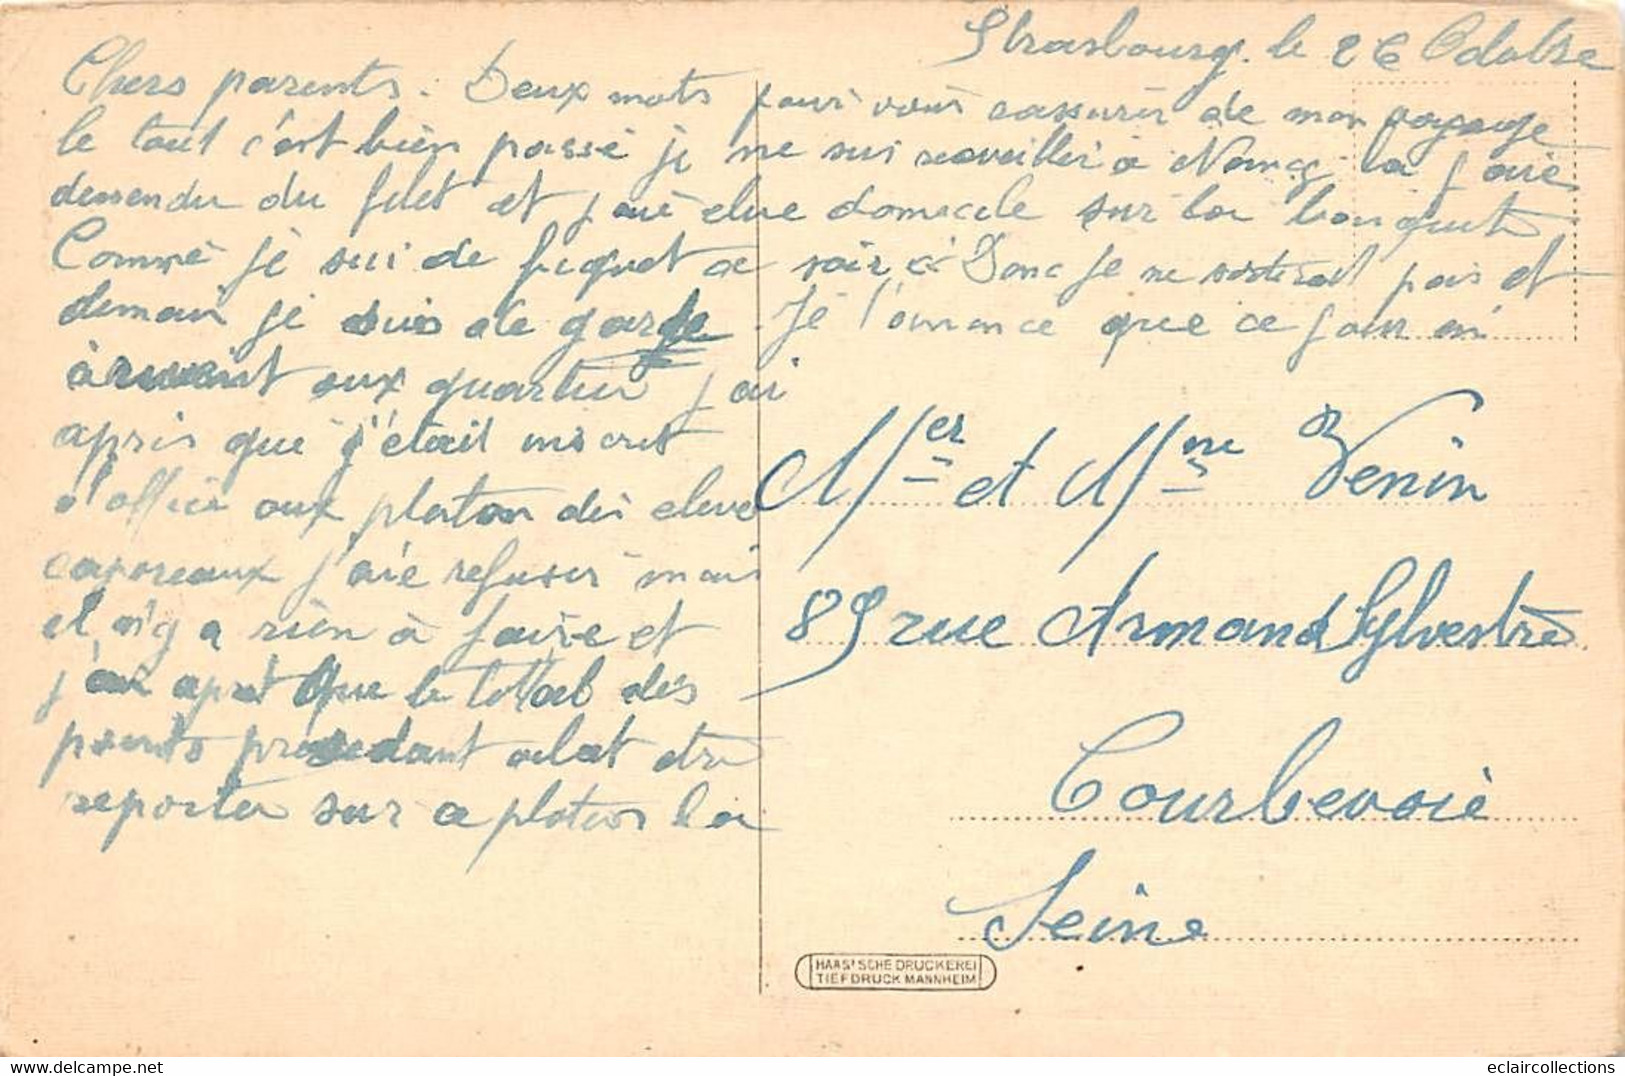 Strasbourg. le 26 Octobre
Chers parents. Deux mots pour vous rassurer de mon voyage
le tout c'est bien passé je me suis reveiller a Nancy la j'aie
dessendu du filet et j'aie élue domicile sur la banquette
Comme je sui de piquet ce soir Donc je ne sortirai pas et
demain je suis de garde. Je l'annonce que ce jour en
arrivant aux quartier j'ai
apris que j'etait inscrit
d'office aux platon des eleve
caporeaux j'aie refuser mais
il n'y a rien à faire et
j'ai aprit que le total des
points presedant alait etre
reporter sur ce platon la
Mer et Mme Venin
85 rue Armand Sylvestre
Courbevoie
Seine
HAAS'SCHE DRUCKEREI
TIEFDRUCK MANNHEIM
eclaircollections